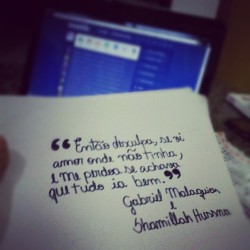 “Então desculpa, se vi
amor onde não tinha,
e me perdoa se achava
que tudo ia bem.”
Gabriel Malaquias
e
Shamillah Hussna